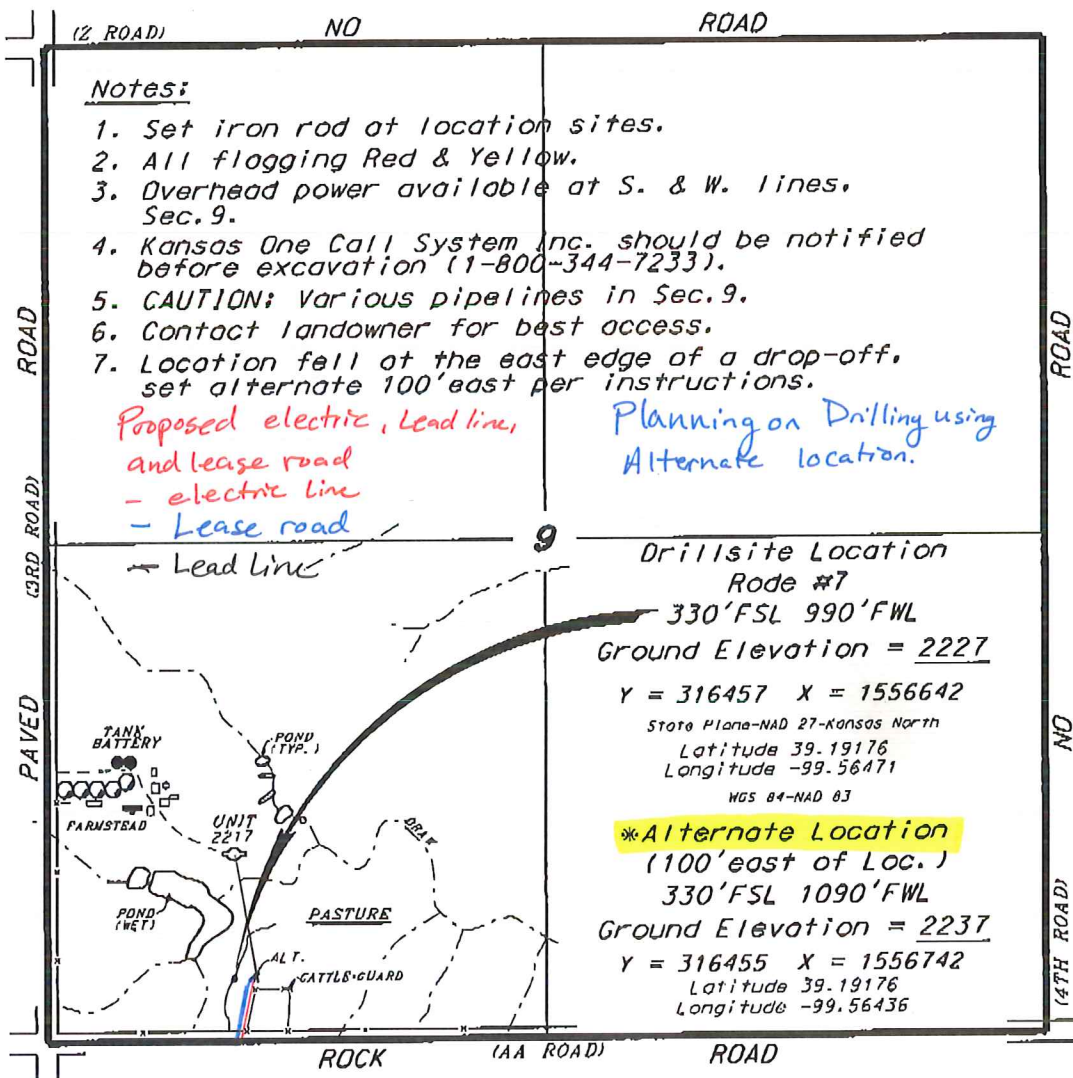 (Z ROAD) NO ROAD
Notes:
1. Set iron rod at location sites.
2. All flagging Red & Yellow.
3. Overhead power available at S. & W. lines.
Sec. 9.
4. Kansas One Call System Inc. should be notified
before excavation (1-800-344-7233).
5. CAUTION: Various pipelines in Sec. 9.
6. Contact landowner for best access.
7. Location fell at the east edge of a drop-off.
set alternate 100'east per instructions.
Proposed electric, Lead line,
and lease road
- electric line
- Lease road
- Lead Line
Planning on Drilling using
Alternate location.
ROAD
(3RD ROAD)
PAVED
9
Drillsite Location
Rode #7
330'FSL 990'FWL
Ground Elevation = 2227
Y = 316457 X = 1556642
State Plane-NAD 27-Kansas North
Latitude 39.19176
Longitude -99.56471
WGS 84-NAD 83
*Alternate Location
(100'east of Loc.)
330'FSL 1090'FWL
Ground Elevation = 2237
Y = 316455 X = 1556742
Latitude 39.19176
Longitude -99.56436
TANK
BATTERY
FARMSTEAD
POND
(TYP.)
UNIT
2217
DRAW
POND
(WET)
PASTURE
ALT.
CATTLE-GUARD
ROAD
NO
(4TH ROAD)
ROCK (AA ROAD) ROAD